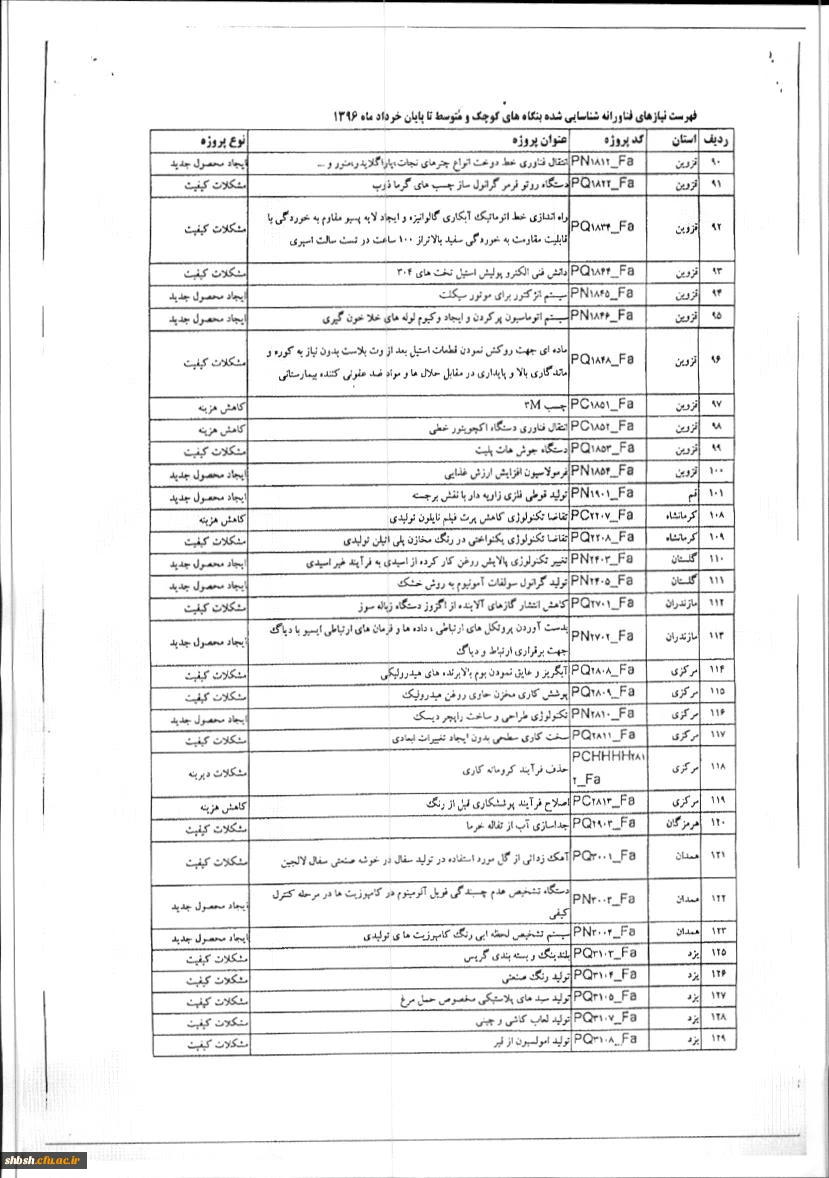 فهرست نیازهای فناورانه شناسایی شده بنگاه های کوچک و متوسط تا پایان خرداد ماه ۱۳۹۶
ردیف استان کد پروژه عنوان پروژه نوع پروژه
۹۰ قزوین PN۱۸۱۲_Fa انتقال فناوری خط دوخت انواع چترهای نجات،پاراگلایدر،منور و ... ایجاد محصول جدید
۹۱ قزوین PQ۱۸۲۲_Fa دستگاه روتو فرمر گرانول ساز چسب های گرما ذوب مشکلات کیفیت
۹۲ قزوین PQ۱۸۳۴_Fa راه اندازی خط اتوماتیک آبکاری گالوانیزه و ایجاد لایه پسیو مقاوم به خوردگی با
قابلیت مقاومت به خوردگی سفید بالاتراز ۱۰۰ ساعت در تست سالت اسپری مشکلات کیفیت
۹۳ قزوین PQ۱۸۴۴_Fa دانش فنی الکترو پولیش استیل تخت های ۳۰۴ مشکلات کیفیت
۹۴ قزوین PN۱۸۴۵_Fa سیستم انژکتور برای موتور سیکلت ایجاد محصول جدید
۹۵ قزوین PN۱۸۴۶_Fa سیستم اتوماسیون پرکردن و ایجاد وکیوم لوله های خلا خون گیری ایجاد محصول جدید
۹۶ قزوین PQ۱۸۴۸_Fa ماده ای جهت روکش نمودن قطعات استیل بعد از وت بلاست بدون نیاز به کوره و
ماندگاری بالا و پایداری در مقابل حلال ها و مواد ضد عفونی کننده بیمارستانی مشکلات کیفیت
۹۷ قزوین PC۱۸۵۱_Fa چسب ۳M کاهش هزینه
۹۸ قزوین PC۱۸۵۲_Fa انتقال فناوری دستگاه اکچویتور خطی کاهش هزینه
۹۹ قزوین PQ۱۸۵۳_Fa دستگاه جوش هات پلیت مشکلات کیفیت
۱۰۰ قزوین PN۱۸۵۴_Fa فرمولاسیون افزایش ارزش غذایی ایجاد محصول جدید
۱۰۱ قم PN۱۹۰۱_Fa تولید قوطی فلزی زاویه دار با نقش برجسته ایجاد محصول جدید
۱۰۸ کرمانشاه PC۲۲۰۷_Fa تقاضا تکنولوژی کاهش پرت فیلم نایلون تولیدی کاهش هزینه
۱۰۹ کرمانشاه PQ۲۲۰۸_Fa تقاضا تکنولوژی یکنواختی در رنگ مخازن پلی اتیلن تولیدی مشکلات کیفیت
۱۱۰ گلستان PN۲۴۰۳_Fa تغییر تکنولوژی پالایش روغن کار کرده از اسیدی به فرآیند غیر اسیدی ایجاد محصول جدید
۱۱۱ گلستان PN۲۴۰۵_Fa تولید گرانول سولفات آمونیوم به روش خشک ایجاد محصول جدید
۱۱۲ مازندران PQ۲۷۰۱_Fa کاهش انتشار گازهای آلاینده از اگزوز دستگاه زباله سوز مشکلات کیفیت
۱۱۳ مازندران PN۲۷۰۲_Fa بدست آوردن پروتکل های ارتباطی ، داده ها و فرمان های ارتباطی ایسیو با دیاگ
جهت برقراری ارتباط و دیاگ ایجاد محصول جدید
۱۱۴ مرکزی PQ۲۸۰۸_Fa آبگریز و عایق نمودن بوم بالابرنده های هیدرولیکی مشکلات کیفیت
۱۱۵ مرکزی PQ۲۸۰۹_Fa پوشش کاری مخزن حاوی روغن هیدرولیک مشکلات کیفیت
۱۱۶ مرکزی PN۲۸۱۰_Fa تکنولوژی طراحی و ساخت راپچر دیسک ایجاد محصول جدید
۱۱۷ مرکزی PQ۲۸۱۱_Fa سخت کاری سطحی بدون ایجاد تغییرات ابعادی مشکلات کیفیت
۱۱۸ مرکزی PCHHHH۲۸۱
۲_Fa حذف فرآیند کروماته کاری مشکلات دیرینه
۱۱۹ مرکزی PC۲۸۱۳_Fa اصلاح فرآیند پوششکاری قبل از رنگ کاهش هزینه
۱۲۰ هرمزگان PQ۲۹۰۳_Fa جداسازی آب از تفاله خرما مشکلات کیفیت
۱۲۱ همدان PQ۳۰۰۱_Fa آهک زدائی از گل مورد استفاده در تولید سفال در خوشه صنعتی سفال لالجین مشکلات کیفیت
۱۲۲ همدان PN۳۰۰۳_Fa دستگاه تشخیص عدم چسبندگی فویل آلومینیوم در کامپوزیت ها در مرحله کنترل
کیفی ایجاد محصول جدید
۱۲۳ همدان PN۳۰۰۴_Fa سیستم تشخیص لحظه ایی رنگ کامپوزیت ها ی تولیدی ایجاد محصول جدید
۱۲۵ یزد PQ۳۱۰۳_Fa بلندینگ و بسته بندی گریس مشکلات کیفیت
۱۲۶ یزد PQ۳۱۰۴_Fa تولید رنگ صنعتی مشکلات کیفیت
۱۲۷ یزد PQ۳۱۰۵_Fa تولید سبد های پلاستیکی مخصوص حمل مرغ مشکلات کیفیت
۱۲۸ یزد PQ۳۱۰۷_Fa تولید لعاب کاشی و چینی مشکلات کیفیت
۱۲۹ یزد PQ۳۱۰۸_Fa تولید امولسیون از قیر مشکلات کیفیت
shbsh.cfu.ac.ir